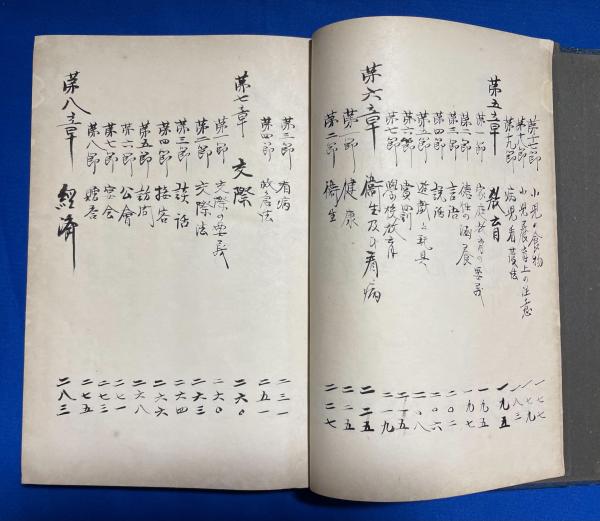 第十七節 小児の食物 一七七
第十八節 小児養育上の注意 一七九
第十九節 病児看護法 一八三
第五章 教育 一九五
第一節 家庭教育の要義 一九五
第二節 徳性の涵養 一九七
第三節 言语 二〇二
第四節 説話 二〇六
第五節 遊戯と玩具 二〇八
第六節 賞罰 二一五
第七節 学校教育 二一九
第六章 衛生及び看病 二二五
第一節 健康 二二五
第二節 衛生 二二七
第三節 看病 二三一
第四節 救急法 二五一
第七章 交際 二六〇
第一節 交際の要義 二六〇
第二節 交際法 二六三
第三節 談話 二六四
第四節 接客 二六六
第五節 訪問 二六八
第六節 公會 二七一
第七節 宴会 二七三
第八節 贈答 二七五
第八章 経済 二八三